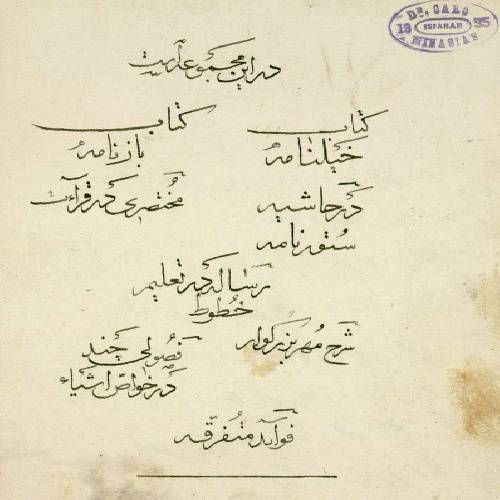 DR. CARO
1935
ISFAHAN
MINASIAN
در این مجموعه است
کتاب
خیلنامه
کتاب
بازنامه
در حاشیه
مختصری در قرآءت
ستورنامه
رساله در تعلیم
خطوط
شرح مُهر بزرکوار
فصولی چند
در خواصّ اشیاء
فوآید متفرّقه